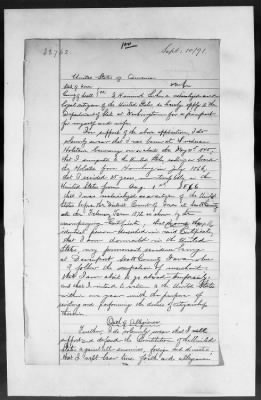 22762
Sept. 10/91.
United States of America
State of Iowa
County of Scott } ss. I,
naturalized and
legal citizen of the United States, do hereby apply to the
Department of State at Washington for a passport
for myself and wife.
In support of the above application, I do
solemnly swear that I was born at
Holstein Germany on or about the day of
that I emigrated to the United States, sailing on board
the from Hamburg in 1866,
that I resided 25 years, uninterruptedly, in the
United States from
that I was naturalized as a citizen of the United
States before the District Court of Iowa in Scott County
at the February Term 1872, as shown by the
accompanying Certificate; that I am the
identical person described in said Certificate,
that I am domiciled in the United
States, my permanent residence being
at Davenport Scott County Iowa where
I follow the occupation of
that I am about to go abroad temporarily;
and that I intend to return to the United States
within one year with the purpose of
residing and performing the duties of citizenship
therein.
Oath of Allegiance
Further, I do solemnly swear that I will
support and defend the Constitution of the United
States against all enemies, foreign and domestic,
that I will bear true faith and allegiance